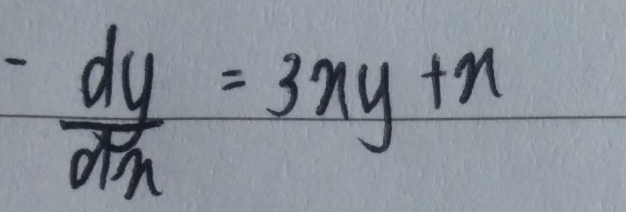 - dy/dx = 3xy + x